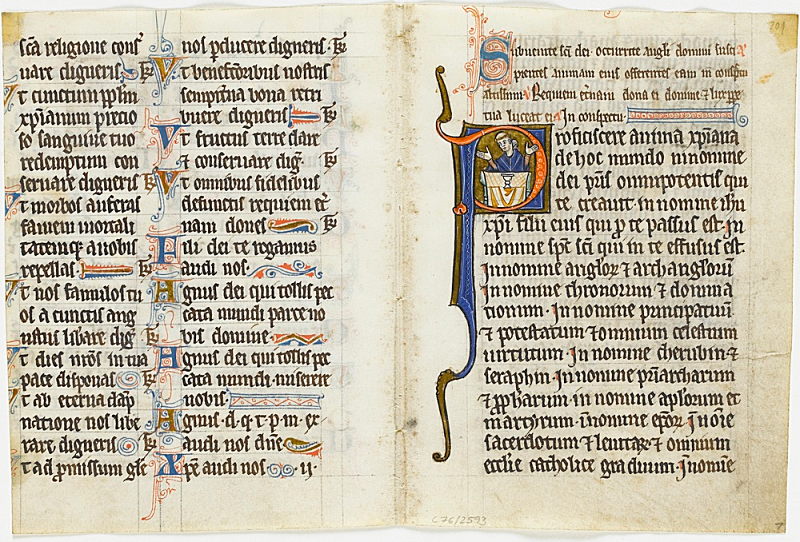 sc̄a religione cons
uare digneris · k̄
Ut cunctum pplm̄
xp̄ianum precio
so sanguine tuo
redemptum con
seruare digneris k̄
Ut morbos auferas
famem mortali
tatemq; a nobis
repellas k̄
Ut nos famulos tu
os a cunctis ang
ustiis libare diḡ k̄
Ut dies nr̄os in tua
pace disponas k̄
Ut ab eterna dāp
natione nos libe
rare digneris k̄
Ut ad ꝓmissum gl̄e
nos ꝑducere digneris · k̄
Ut benefactoribus nostris
sempiterna bona retri
buere digneris k̄
Ut fructus terre dare
et conseruare diḡ · k̄
Ut omnibus fidelibus
defunctis requiem et̄
nam dones k̄
Fili dei te rogamus
audi nos ·
Agnus dei qui tollis pec
cata mundi parce no
bis domine ·
Agnus dei qui tollis pec
cata mundi · miserere
nobis
Agnus · d · q · t · p · m · ex
audi nos dn̄e
Xp̄e audi nos · ii ·
201
Subuenite sc̄i dei · occurrite angl̄i domini susci
pientes animam eius offerentes eam in conspctu
altissimi Requiem et̄nam dona ei domine ⁊ lux ꝑpe
tua luceat ei In conspectu ·
Proficiscere anima xp̄iana
de hoc mundo in nomine
dei pr̄is omnipotentis qui
te creauit · in nomine ih̄u
xp̄i filii eius qui ꝓ te passus est · In
nomine sp̄c sc̄i qui in te effusus est ·
In nomine anglor̄ ⁊ archanglorū
In nomine thronorum ⁊ domina
tionum · In nomine principatuū
⁊ potestatum ⁊ omnium celestium
uirtutum · In nomine cherubin ⁊
seraphin · In nomine pr̄iarcharum
⁊ ꝓpharum · in nomine aplorum et
martyrum · in nomine epōr · In noīe
sacerdotum ⁊ leuitar̄ · ⁊ omnium
ecclīe catholice graduum · In nomīe
C76/2593
7